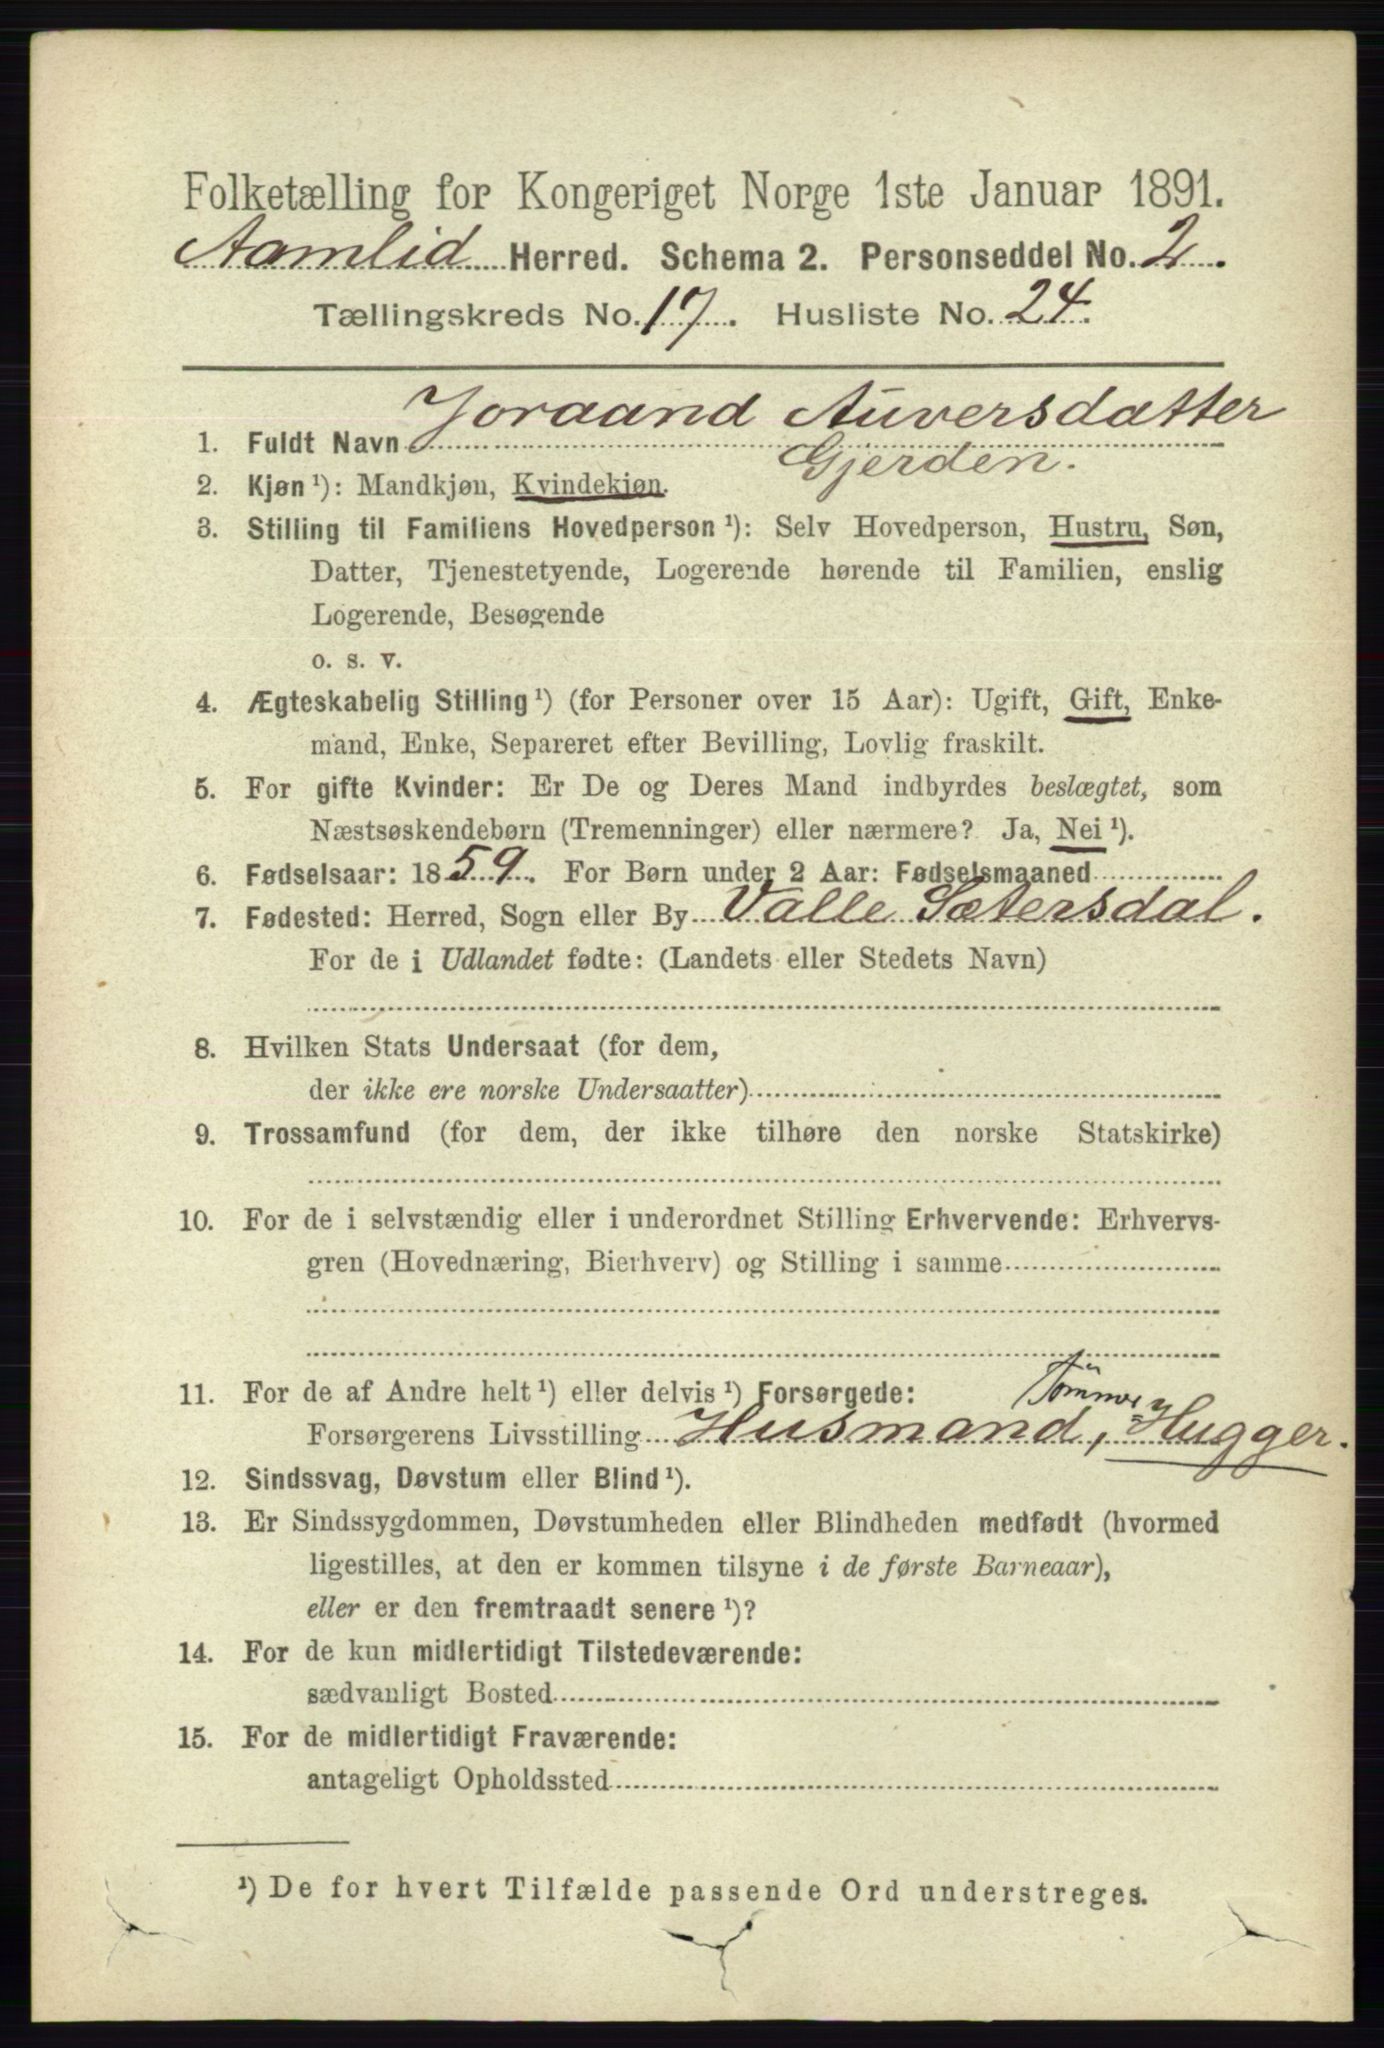 Folketælling for Kongeriget Norge 1ste Januar 1891.
Aamlid Herred. Schema 2. Personseddel No. 2.
Tællingskreds No. 17. Husliste No. 24.
Joraand Auversdatter
1. Fuldt Navn
Gjerden.
2. Kjøn ¹): Mandkjøn, Kvindekjøn.
3. Stilling til Familiens Hovedperson ¹): Selv Hovedperson, Hustru, Søn,
Datter, Tjenestetyende, Logerende hørende til Familien, enslig
Logerende, Besøgende
o. s. v.
4. Ægteskabelig Stilling ¹) (for Personer over 15 Aar): Ugift, Gift, Enke-
mand, Enke, Separeret efter Bevilling, Lovlig fraskilt.
5. For gifte Kvinder: Er De og Deres Mand indbyrdes beslægtet, som
Næstsøskendebørn (Tremenninger) eller nærmere? Ja, Nei ¹).
6. Fødselsaar: 1859. For Børn under 2 Aar: Fødselsmaaned
7. Fødested: Herred, Sogn eller By Valle Sætersdal.
For de i Udlandet fødte: (Landets eller Stedets Navn)
8. Hvilken Stats Undersaat (for dem,
der ikke ere norske Undersaatter)
9. Trossamfund (for dem, der ikke tilhøre den norske Statskirke)
10. For de i selvstændig eller i underordnet Stilling Erhvervende: Erhvervs-
gren (Hovednæring, Bierhverv) og Stilling i samme
11. For de af Andre helt ¹) eller delvis ¹) Forsørgede:
Tömmer
Forsørgerens Livsstilling Husmand, =Hugger.
12. Sindssvag, Døvstum eller Blind ¹).
13. Er Sindssygdommen, Døvstumheden eller Blindheden medfødt (hvormed
ligestilles, at den er kommen tilsyne i de første Barneaar),
eller er den fremtraadt senere ¹)?
14. For de kun midlertidigt Tilstedeværende:
sædvanligt Bosted
15. For de midlertidigt Fraværende:
antageligt Opholdssted
¹) De for hvert Tilfælde passende Ord understreges.